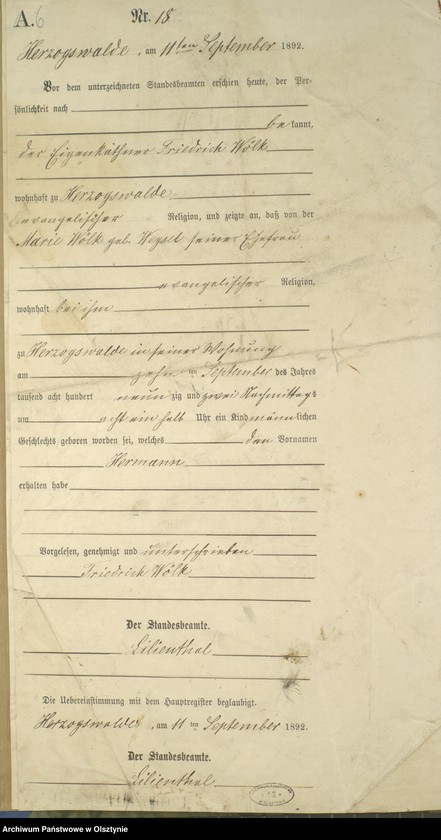 A. 6
Nr. 18
Herzogswalde, am 11ten September 1892.
Vor dem unterzeichneten Standesbeamten erschien heute, der Per-
sönlichkeit nach
bekannt,
der Eigenkäthner Friedrich Wölk
wohnhaft zu Herzogswalde
evangelischer Religion, und zeigte an, daß von der
Marie Wölk geb. seiner Ehefrau
evangelischer Religion,
wohnhaft bei ihm
zu Herzogswalde in seiner Wohnung
am zehnten September des Jahres
tausend acht hundert neunzig und zwei Nachmittags
um acht ein halb Uhr ein Kind männlichen
Geschlechts geboren worden sei, welches den Vornamen
Hermann
erhalten habe
Vorgelesen, genehmigt und unterschrieben
Friedrich Wölk
Der Standesbeamte.
Lilienthal
Die Uebereinstimmung mit dem Hauptregister beglaubigt.
Herzogswalde, am 11ten September 1892.
Der Standesbeamte.
Lilienthal
Archiwum Państwowe w Olsztynie